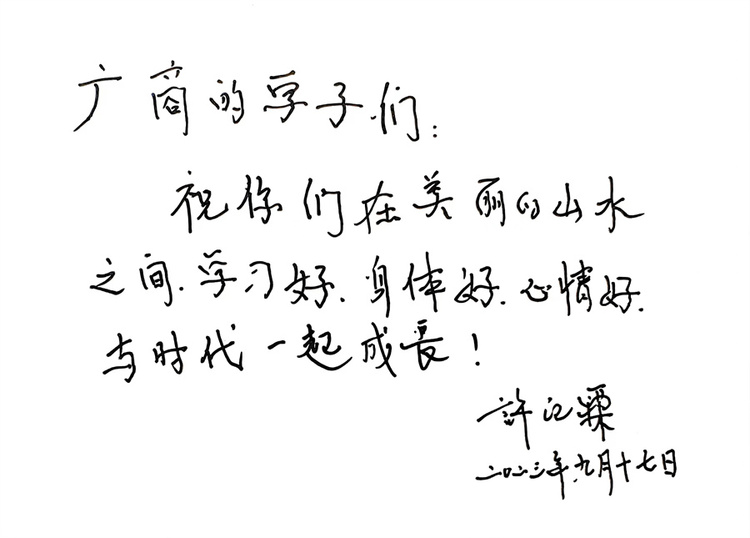 广商的学子们：
祝你们在美丽的山水
之间、学习好、身体好、心情好、
与时代一起成長！
許江霖
二〇二三年九月十七日